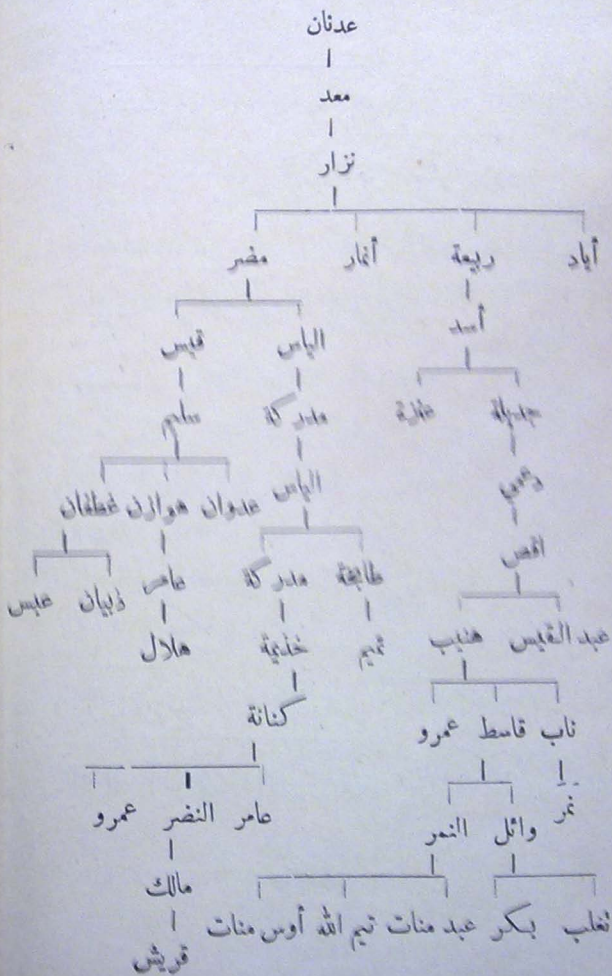 عدنان
معد
نزار
أياد ربيعة أنمار مضر
أسد
الياس قيس
جديلة عنزة مدركة سليم
الياس
عدوان هوازن غطفان
افصى
طابخة مدركة عامر ذبيان عبس
عبد القيس هنيب تميم خذيمة هلال
كنانة
ناب قاسط عمرو
نمر
عامر النضر عمرو
وائل النمر
مالك
تغلب بكر عبد منات تيم الله أوس منات
قريش